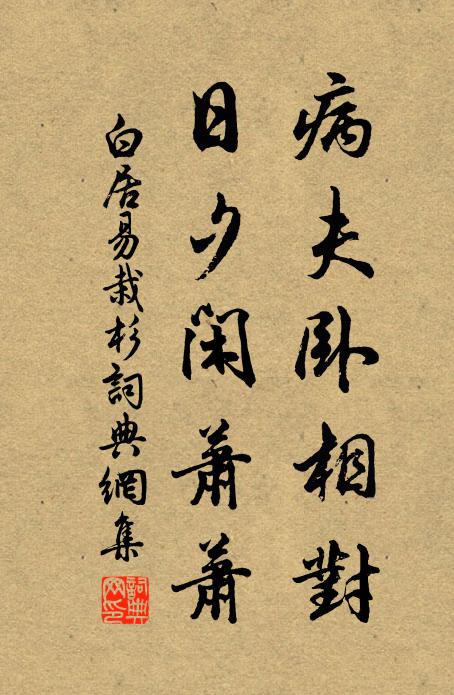 病夫卧相對
日夕閑蕭蕭
白居易栽杉詞典網集
詞典网印